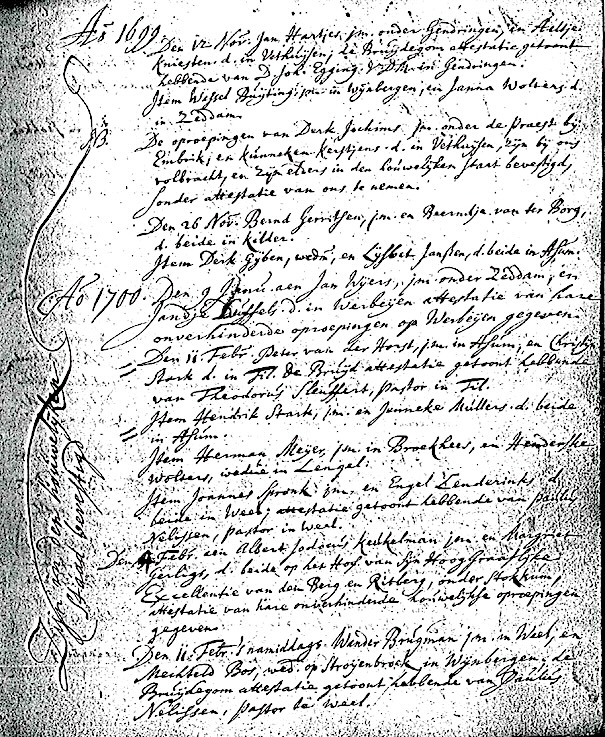 Aº 1699.
Den 12 Nov. Jan Hartjes, jm. onder Gendringen, en Aeltje
Kniesten. d. in Vethuijsen, de Bruijdegom attestatie getoont
hebbende van D. Joh. Egging. V.D.M. in Gendringen.
Item Wessel Buijting. jm. in Wijnbergen, en Janna Wolters. d.
in Zeddam.
NB. De oproepingen van Derk Jochims, jm. onder de Praest bij
Embrik, en Kunneken Kerstjens. d. in Vethuijsen, zijn bij ons
volbracht, en zijn elders in den houwelijken staat bevestigd,
sonder attestatie van ons te nemen.
Den 26 Nov. Bernd Gerritsen, jm. en Baerndje van ter Borg,
d. beide in Kilder.
Item Derk Gijben, wedr, en Lijsbet Janssen, d. beide in Asum.
Aº 1700. Den 9 aen Jan Wijers, jm. onder Zeddam, en
Jandje d. in Werbeijen attestatie van hare
onverhinderde oproepingen op Werbeijen gegeven.
Den 11 Febr. Peter van der Horst, jm. in Asum, en Christijn
Stark d. in Til. De Bruijd attestatie getoont hebbende
van Theodorus Sleuffert, Pastor in Til.
Item Hendrik Stark, jm. en Jenneke Mullers. d. beide
in Asum.
Item Herman Meijer, jm. in Broekhees, en Henderske
Wolters, wedue in Lengel.
Item Joannes Spronk. jm. en Engel Lenderinks d.
beide in Weel, attestatie getoont hebbende van Paulus
Nelissen, Pastor in Weel.
Den Febr. aen Albert Jodocus Keukelman, jm. en Margriet
Gerligs, d. beide op het Hof van Sijn Hoog Graaflijke
Excellentie van den Berg en Ritberg, onder Stokkum,
attestatie van hare onverhinderde houwelijkse oproepingen
gegeven.
Den 11. Febr. 's namiddags. Wander Brugman jm. in Weel, en
Mechteld Bos, wed. op Stroijenbrock, in Wijnbergen, de
Bruijdegom attestatie getoont hebbende van Paulus
Nelissen, Pastor te Weel.
Zijn in den houwelijken
Staad bevestigd